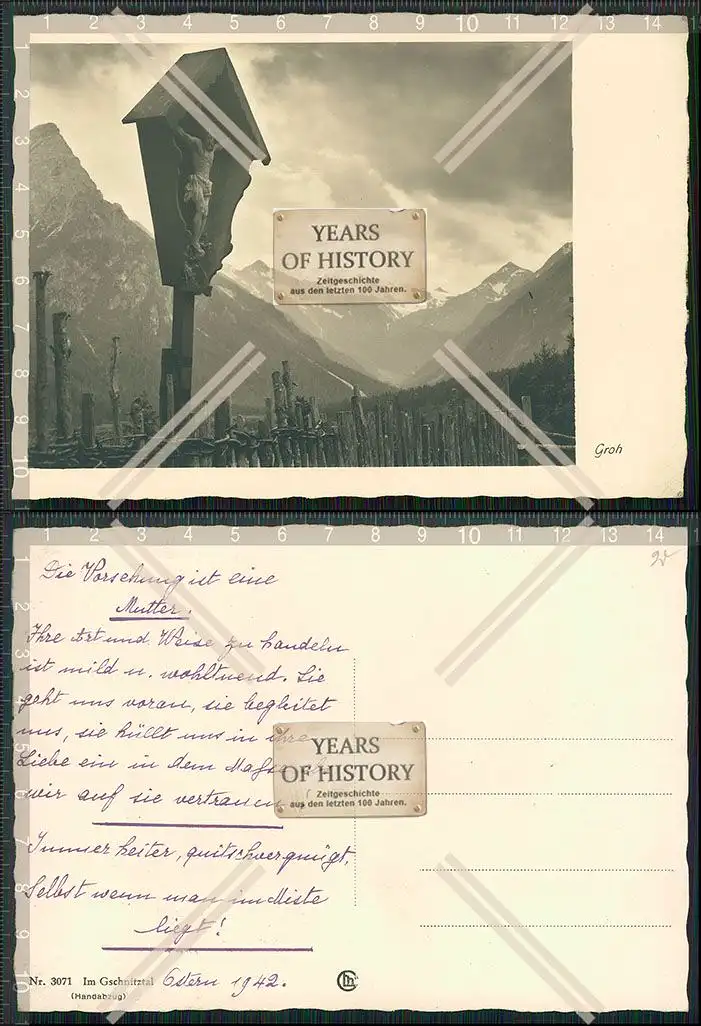 1 2 3 4 5 6 7 8 9 10 11 12 13 14
1
2
3
4
5
6
7
8
9
10
YEARS
OF HISTORY
Zeitgeschichte
aus den letzten 100 Jahren.
Groh
1 2 3 4 5 6 7 8 9 10 11 12 13 14
1
2
3
4
5
6
7
8
9
10
Die Vorsehung ist eine
Mutter.
Ihre Art und Weise zu handeln
ist mild u. wohltuend. Sie
geht uns voran, sie begleitet
uns, sie hüllt uns in ihre
Liebe ein in dem
wir auf sie vertrauen
YEARS
OF HISTORY
Zeitgeschichte
aus den letzten 100 Jahren.
Immer heiter, quitschvergnügt,
Selbst wenn man im Miste
liegt!
Nr. 3071 Im Gschnitztal Ostern 1942.
(Handabzug)